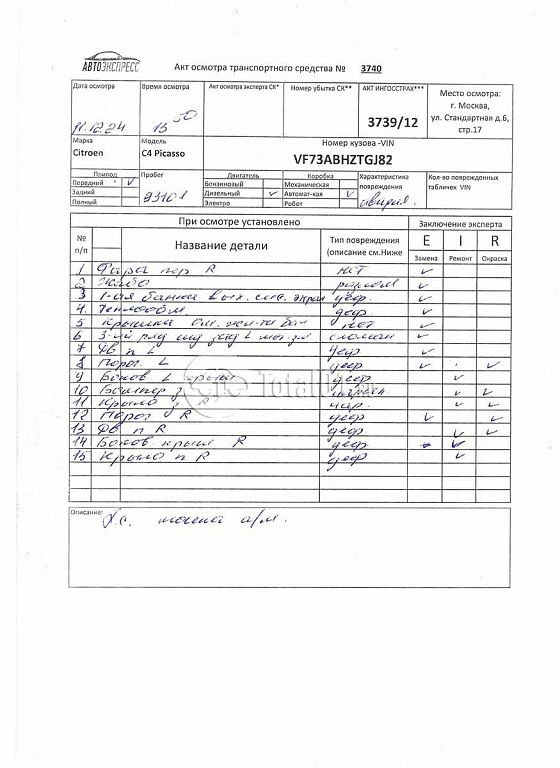 АВТОЭКСПРЕСС
Акт осмотра транспортного средства № 3740
Дата осмотра
Время осмотра
Акт осмотра эксперта СК*
Номер убытка СК**
АКТ ИНГОССТРАХ***
Место осмотра:
г. Москва,
ул. Стандартная д.6,
стр.17
11.12.24
13 50
3739/12
Марка
Модель
Номер кузова -VIN
Citroen
C4 Picasso
VF73ABHZTGJ82
Привод
Пробег
Двигатель
Коробка
Характеристика
повреждения
Кол-во поврежденных
табличек VIN
Передний V
Бензиновый
Механическая
Задний
Дизельный V
Автомат-кая V
Полный
Электро
Робот
93101
При осмотре установлено
Заключение эксперта
№
п/п
Название детали
Тип повреждения
(описание см.Ниже
E I R
Замена Ремонт Окраска
1 Фара пер R нет V
2 V
3 1-ая банка вых. экран деф. V
4. деф V
5 Крышка нет V
6 3-ий ряд V
7 ФВ п L деф V
8 Порог L деф V V
9 Боков L крыши деф V
10 Бампер з V V
11 Крыло з R V V
12 Порог R деф V V
13 ФВ п R деф V V
14 Боков. крыши R деф V
15 Крыло п R деф V
Total
Описание:
Х.с. а/м.